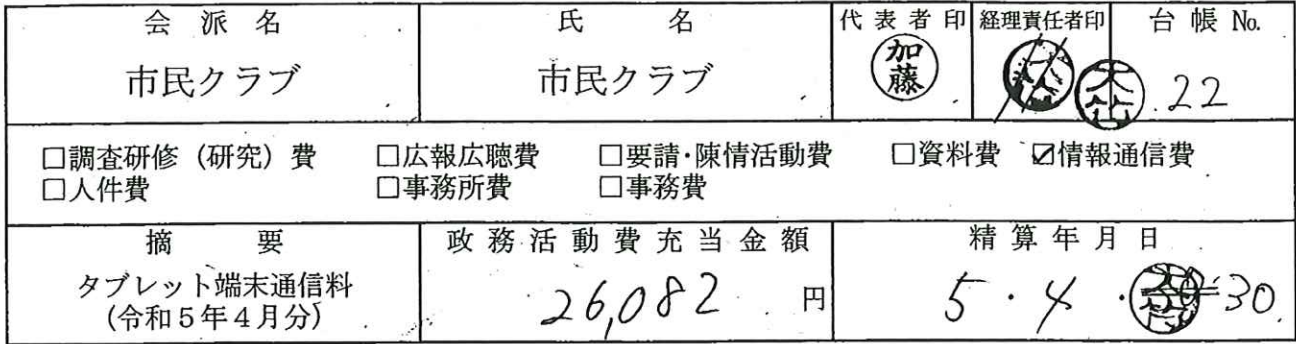 会派名 氏名 代表者印 経理責任者印 台帳No.
市民クラブ 市民クラブ 加藤 22
□調査研修(研究)費 □広報広聴費 □要請・陳情活動費 □資料費 ☑情報通信費
□人件費 □事務所費 □事務費
摘要 政務活動費充当金額 精算年月日
タブレット端末通信料
(令和5年4月分) 26,082 円 5・4・30